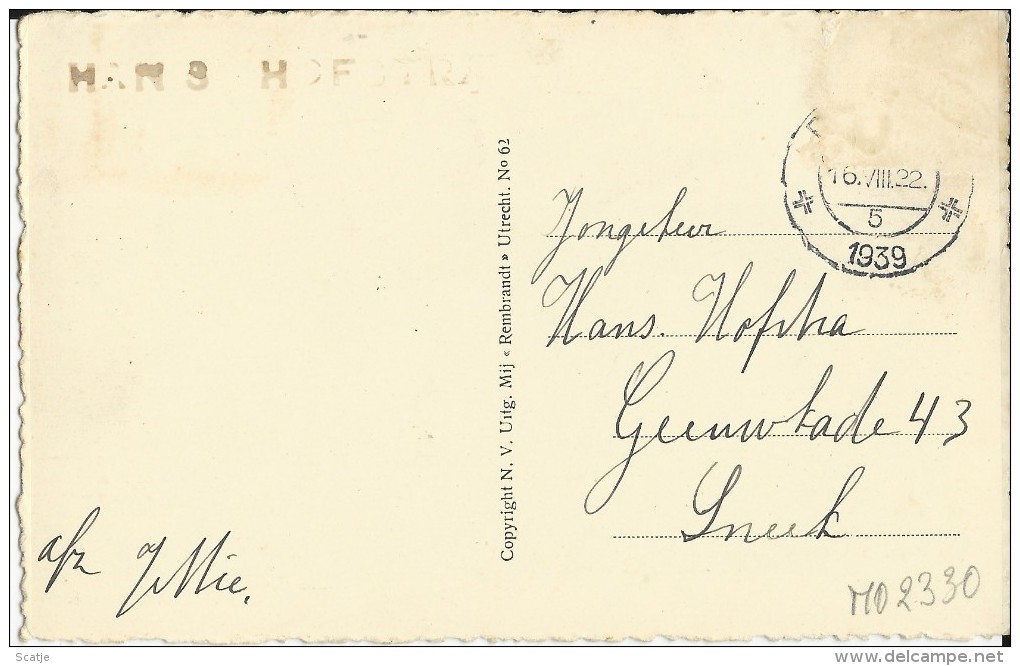 HANS HOFSTRA
16.VIII.22.
5
1939
Copyright N. V. Uitg. Mij « Rembrandt » Utrecht. No 62
Jongeheer
Hans. Hofstra
Geeuwkade 43
Sneek
afz
MD 2330
Scatje
delcampe.net